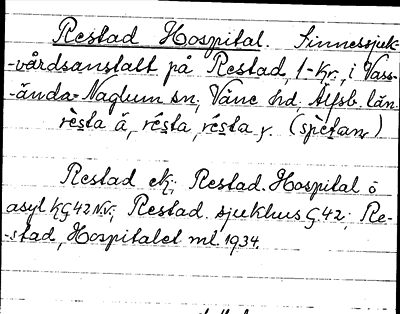 Restad Hospital. Sinnessjuk-
-vårdsanstalt på Restad, 1-Kr., i Vass-
-ända-Naglum sn, Väne hd, Älfsb. län.
rèsta å, résta, résta y. (spètan)
Restad ek; Restad. Hospital o
asyl KG42 N.v.; Restad. sjukhus G42; Re-
-stad, Hospitalet ml. 1934.